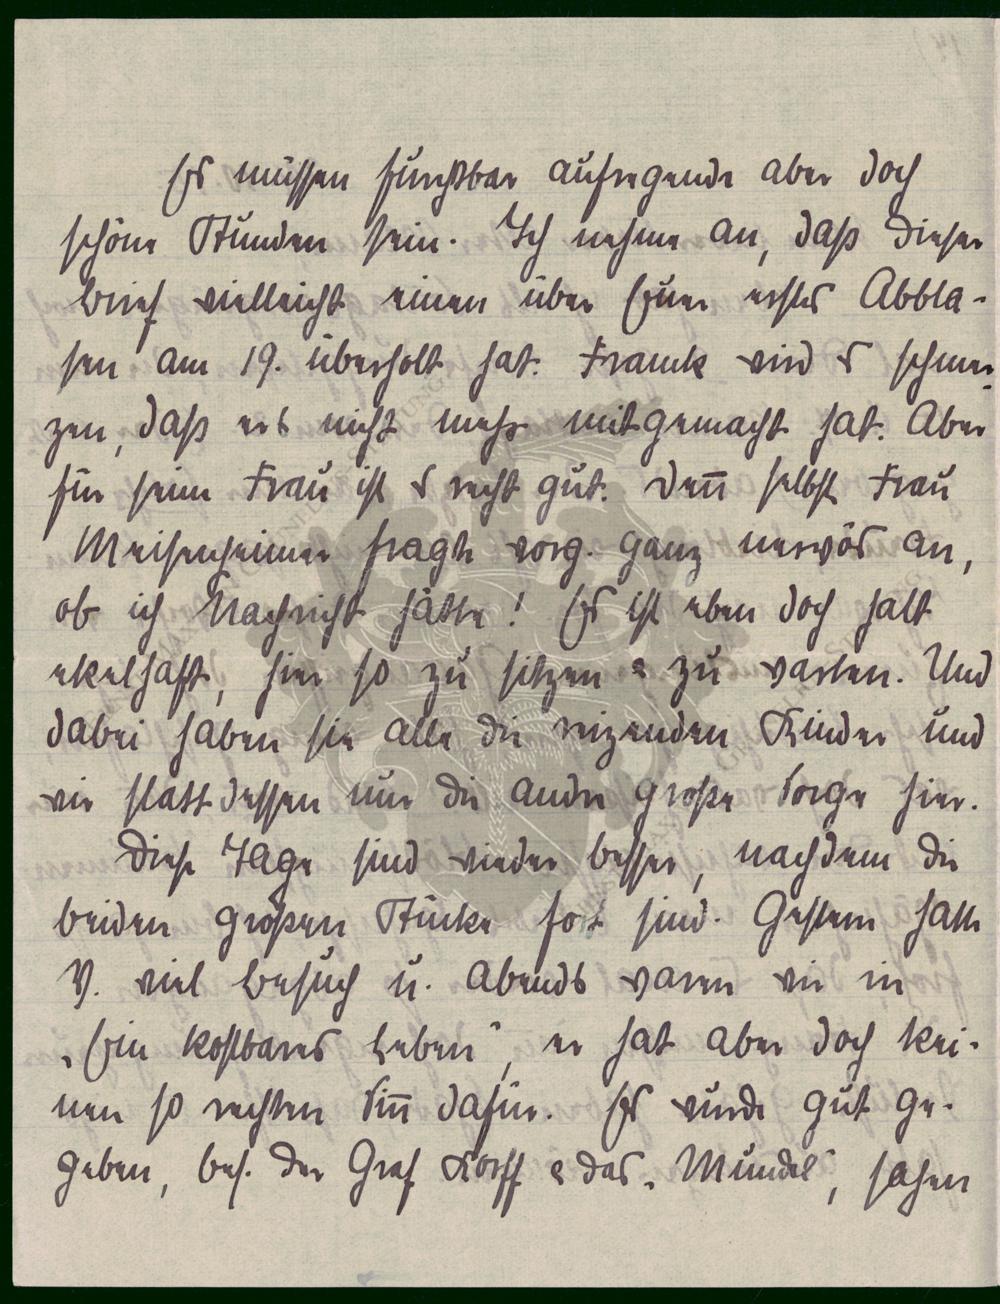 Es müssen furchtbar aufregende aber doch
schöne Stunden sein. Ich nehme an, daß dieser
Brief vielleicht einen über Euer erstes Abbla-
sen am 19. überholt hat. Franck wird es schmer-
zen, daß ers nicht mehr mitgemacht hat. Aber
für seine Frau ist es recht gut. Denn selbst Frau
Meisenheimer fragte vorg. ganz nervös an,
ob ich Nachricht hätte! Es ist eben doch halt
ekelhaft, hier so zu sitzen & zu warten. Und
dabei haben sie alle die reizenden Kinder und
wir statt dessen nur die andre große Sorge hier.
Diese Tage sind wieder besser, nachdem die
beiden großen Stücke fort sind. Gestern hatte
V. viel Besuch u. Abends waren wir in
„Ein kostbares Leben“, er hat aber doch kei-
nen so rechten Sinn dafür. Es wurde gut ge-
geben, bes. der Graf Korff & das „Mündel“, sahen